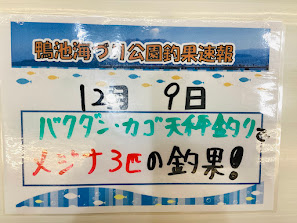 鴨池海づり公園釣果速報
12月 9日
バクダン・カゴ天秤釣りで
メジナ3匹の釣果!